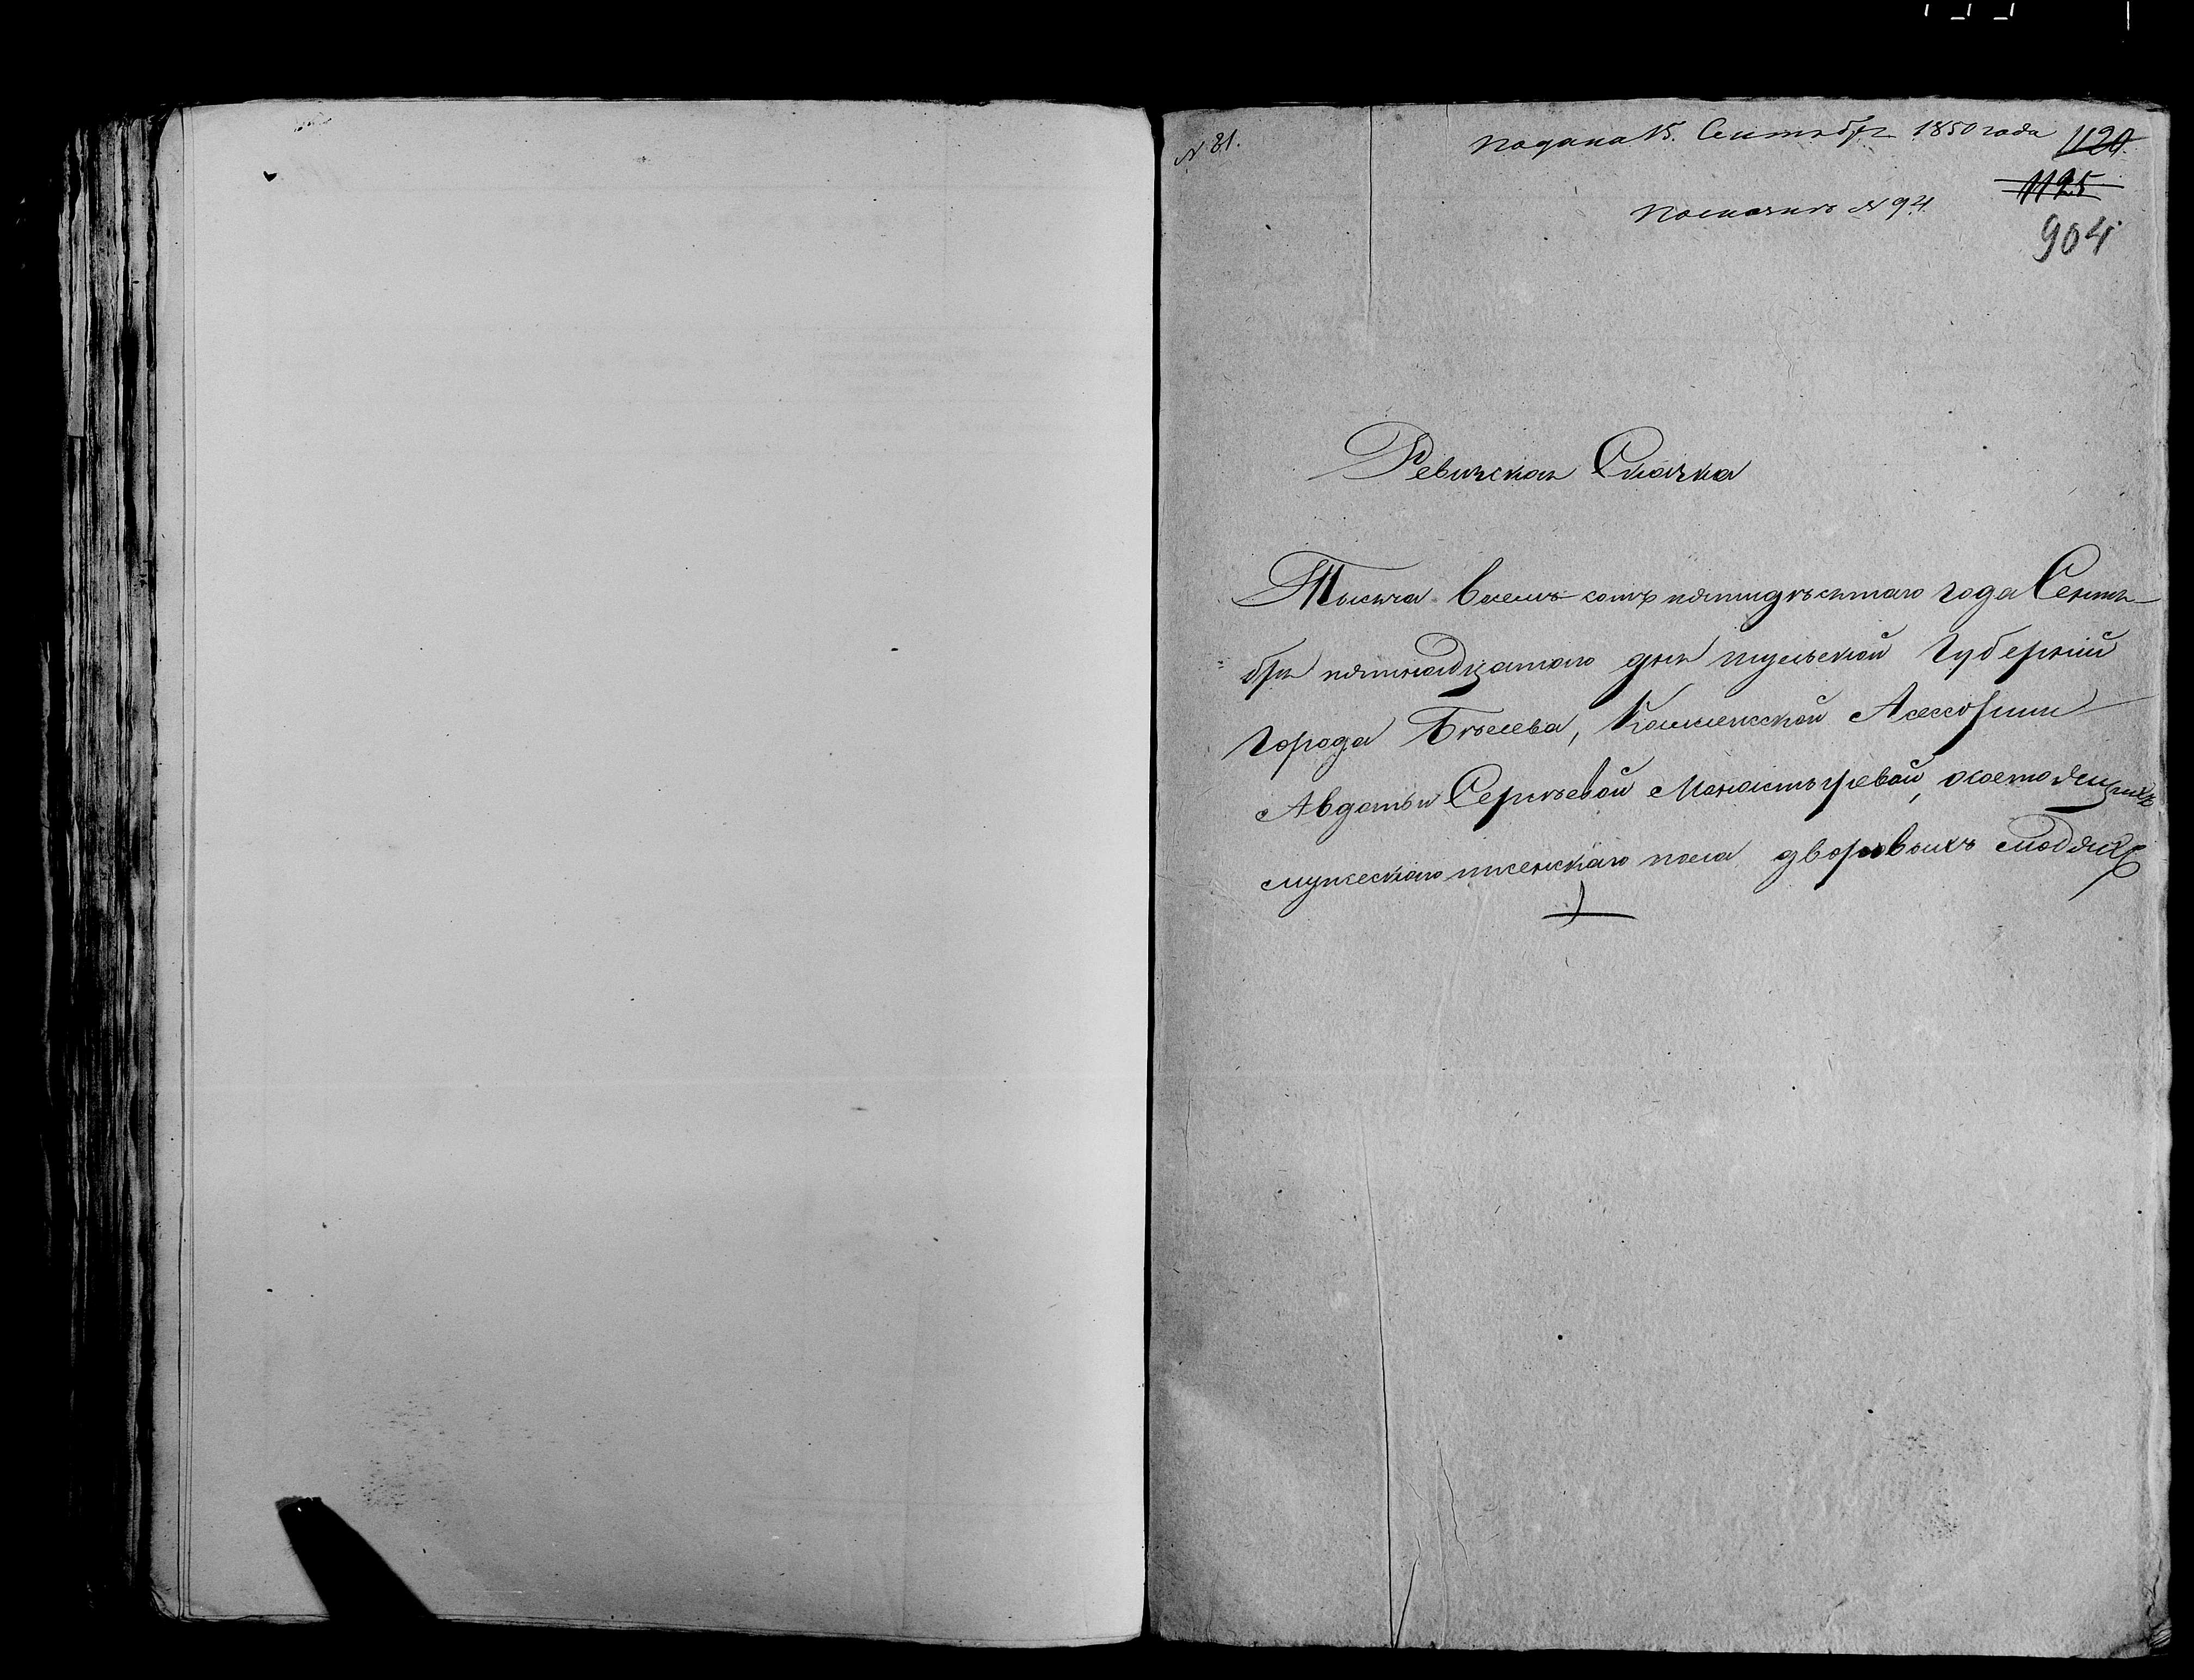 N 81.
Подана 15. Сентября 1850 года
1120
1125
N 94
904
Ревизская Сказка
Тысяча восемь сотъ пятидѣсятаго года Сентя-
бря пятнадцатаго дня тульской Губернiи
города Бѣлева, Коллежской Асессорши
Авдотьи Сергѣевой Манастыревой, осостоящихъ
мужескаго иженскаго пола дворовыхъ людяхъ